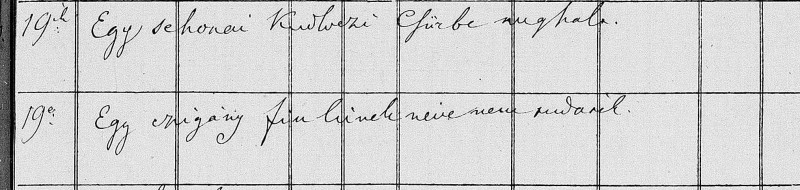 19ik Egy sehonai Kudvezi Csürbe meghalt.
19e: Egy czigány fiu kinek neve nem tudatik.